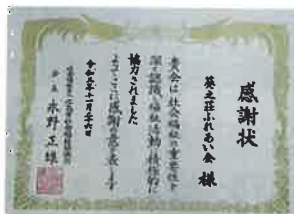 感謝状
葵之荘ふれあい会 様
貴会は社会福祉の重要性を
深く認識し福祉活動に積極的に
協力されました
よってここに感謝の意を表します
令和元年十一月二十六日
会長 水野正雄